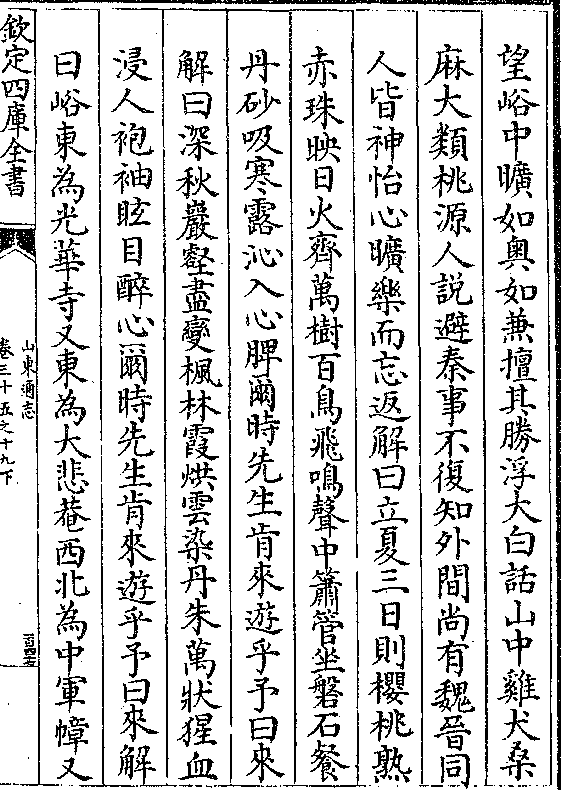 望峪中曠如奥如兼擅其勝浮大白話山中雞犬桑
麻大類桃源人説避秦事不復知外間尚有魏晉同
人皆神怡心曠樂而忘返解曰立夏三日則櫻桃熟
赤珠映日火齊萬樹百鳥飛鳴聲中簫管坐磐石餐
丹砂吸寒露沁入心脾爾時先生肯來遊乎予曰來
解曰深秋巖壑盡變楓林霞烘雲染丹朱萬狀猩血
浸人袍袖眩目醉心爾時先生肯來遊乎予曰來解
曰峪東為光華寺又東為大悲菴西北為中軍幛又
欽定四庫全書
山東通志
卷三十五之十九下